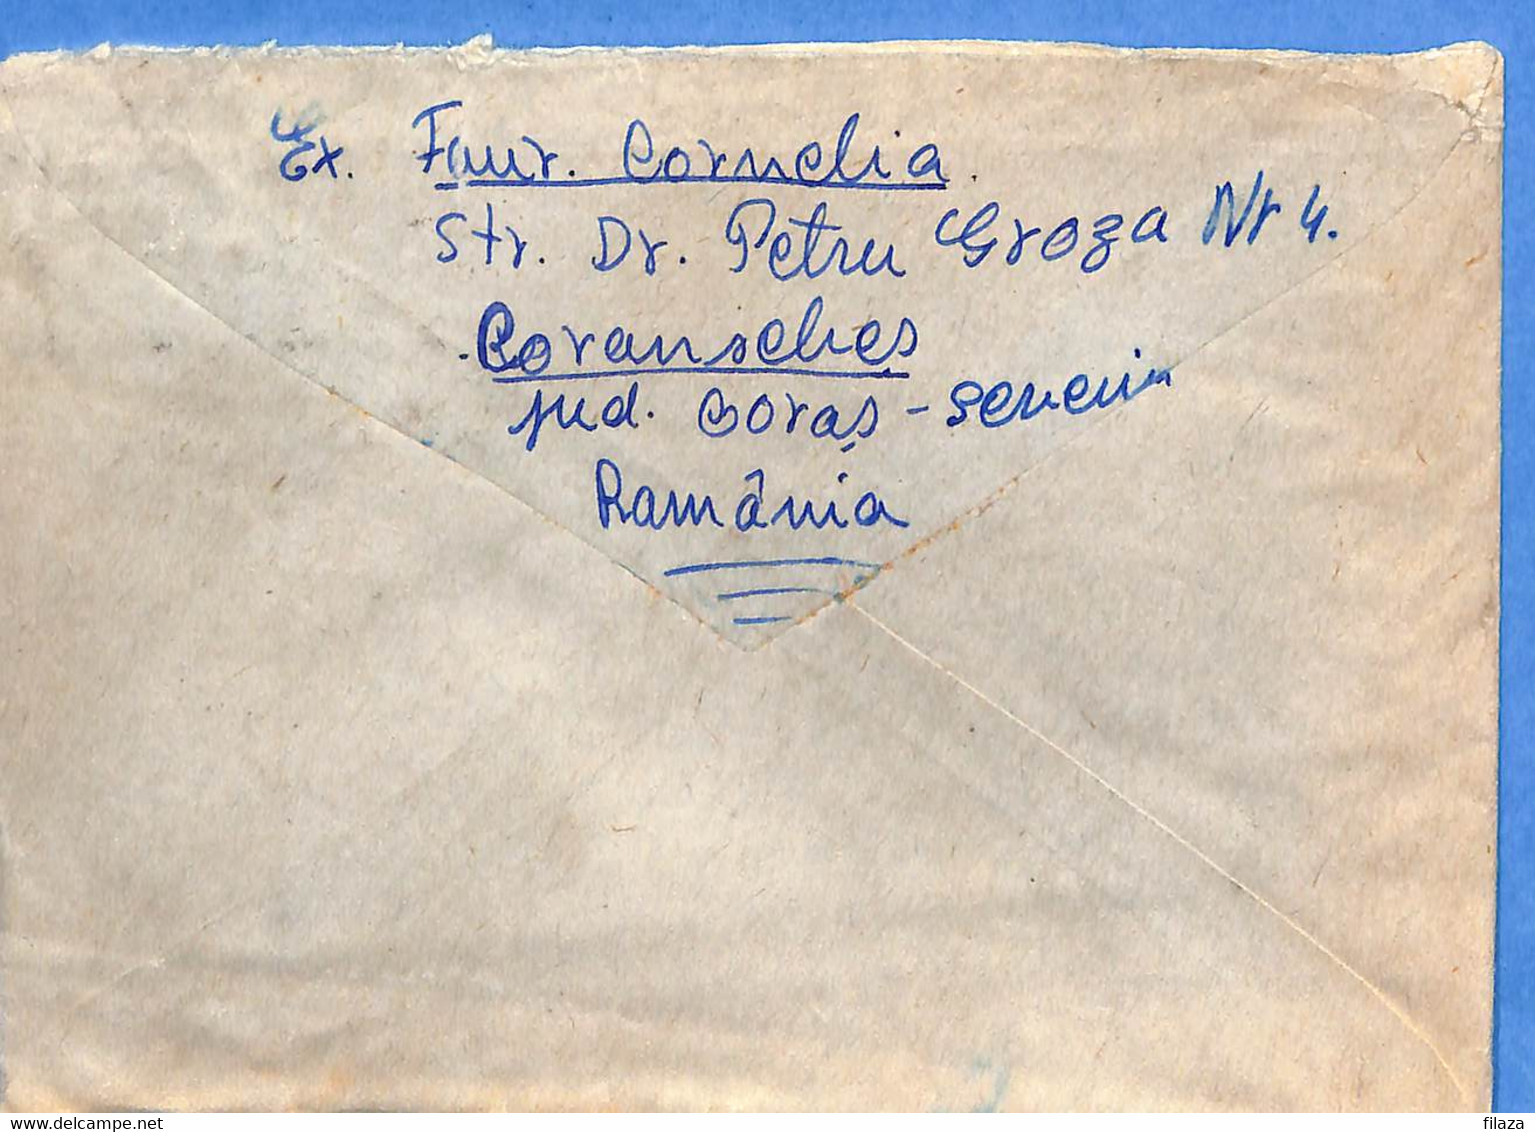 Ex. Faur. Cornelia.
Str. Dr. Petru Groza Nr 4.
Caransebeş
jud. Caraş - Severin
România
www.delcampe.net
filaza